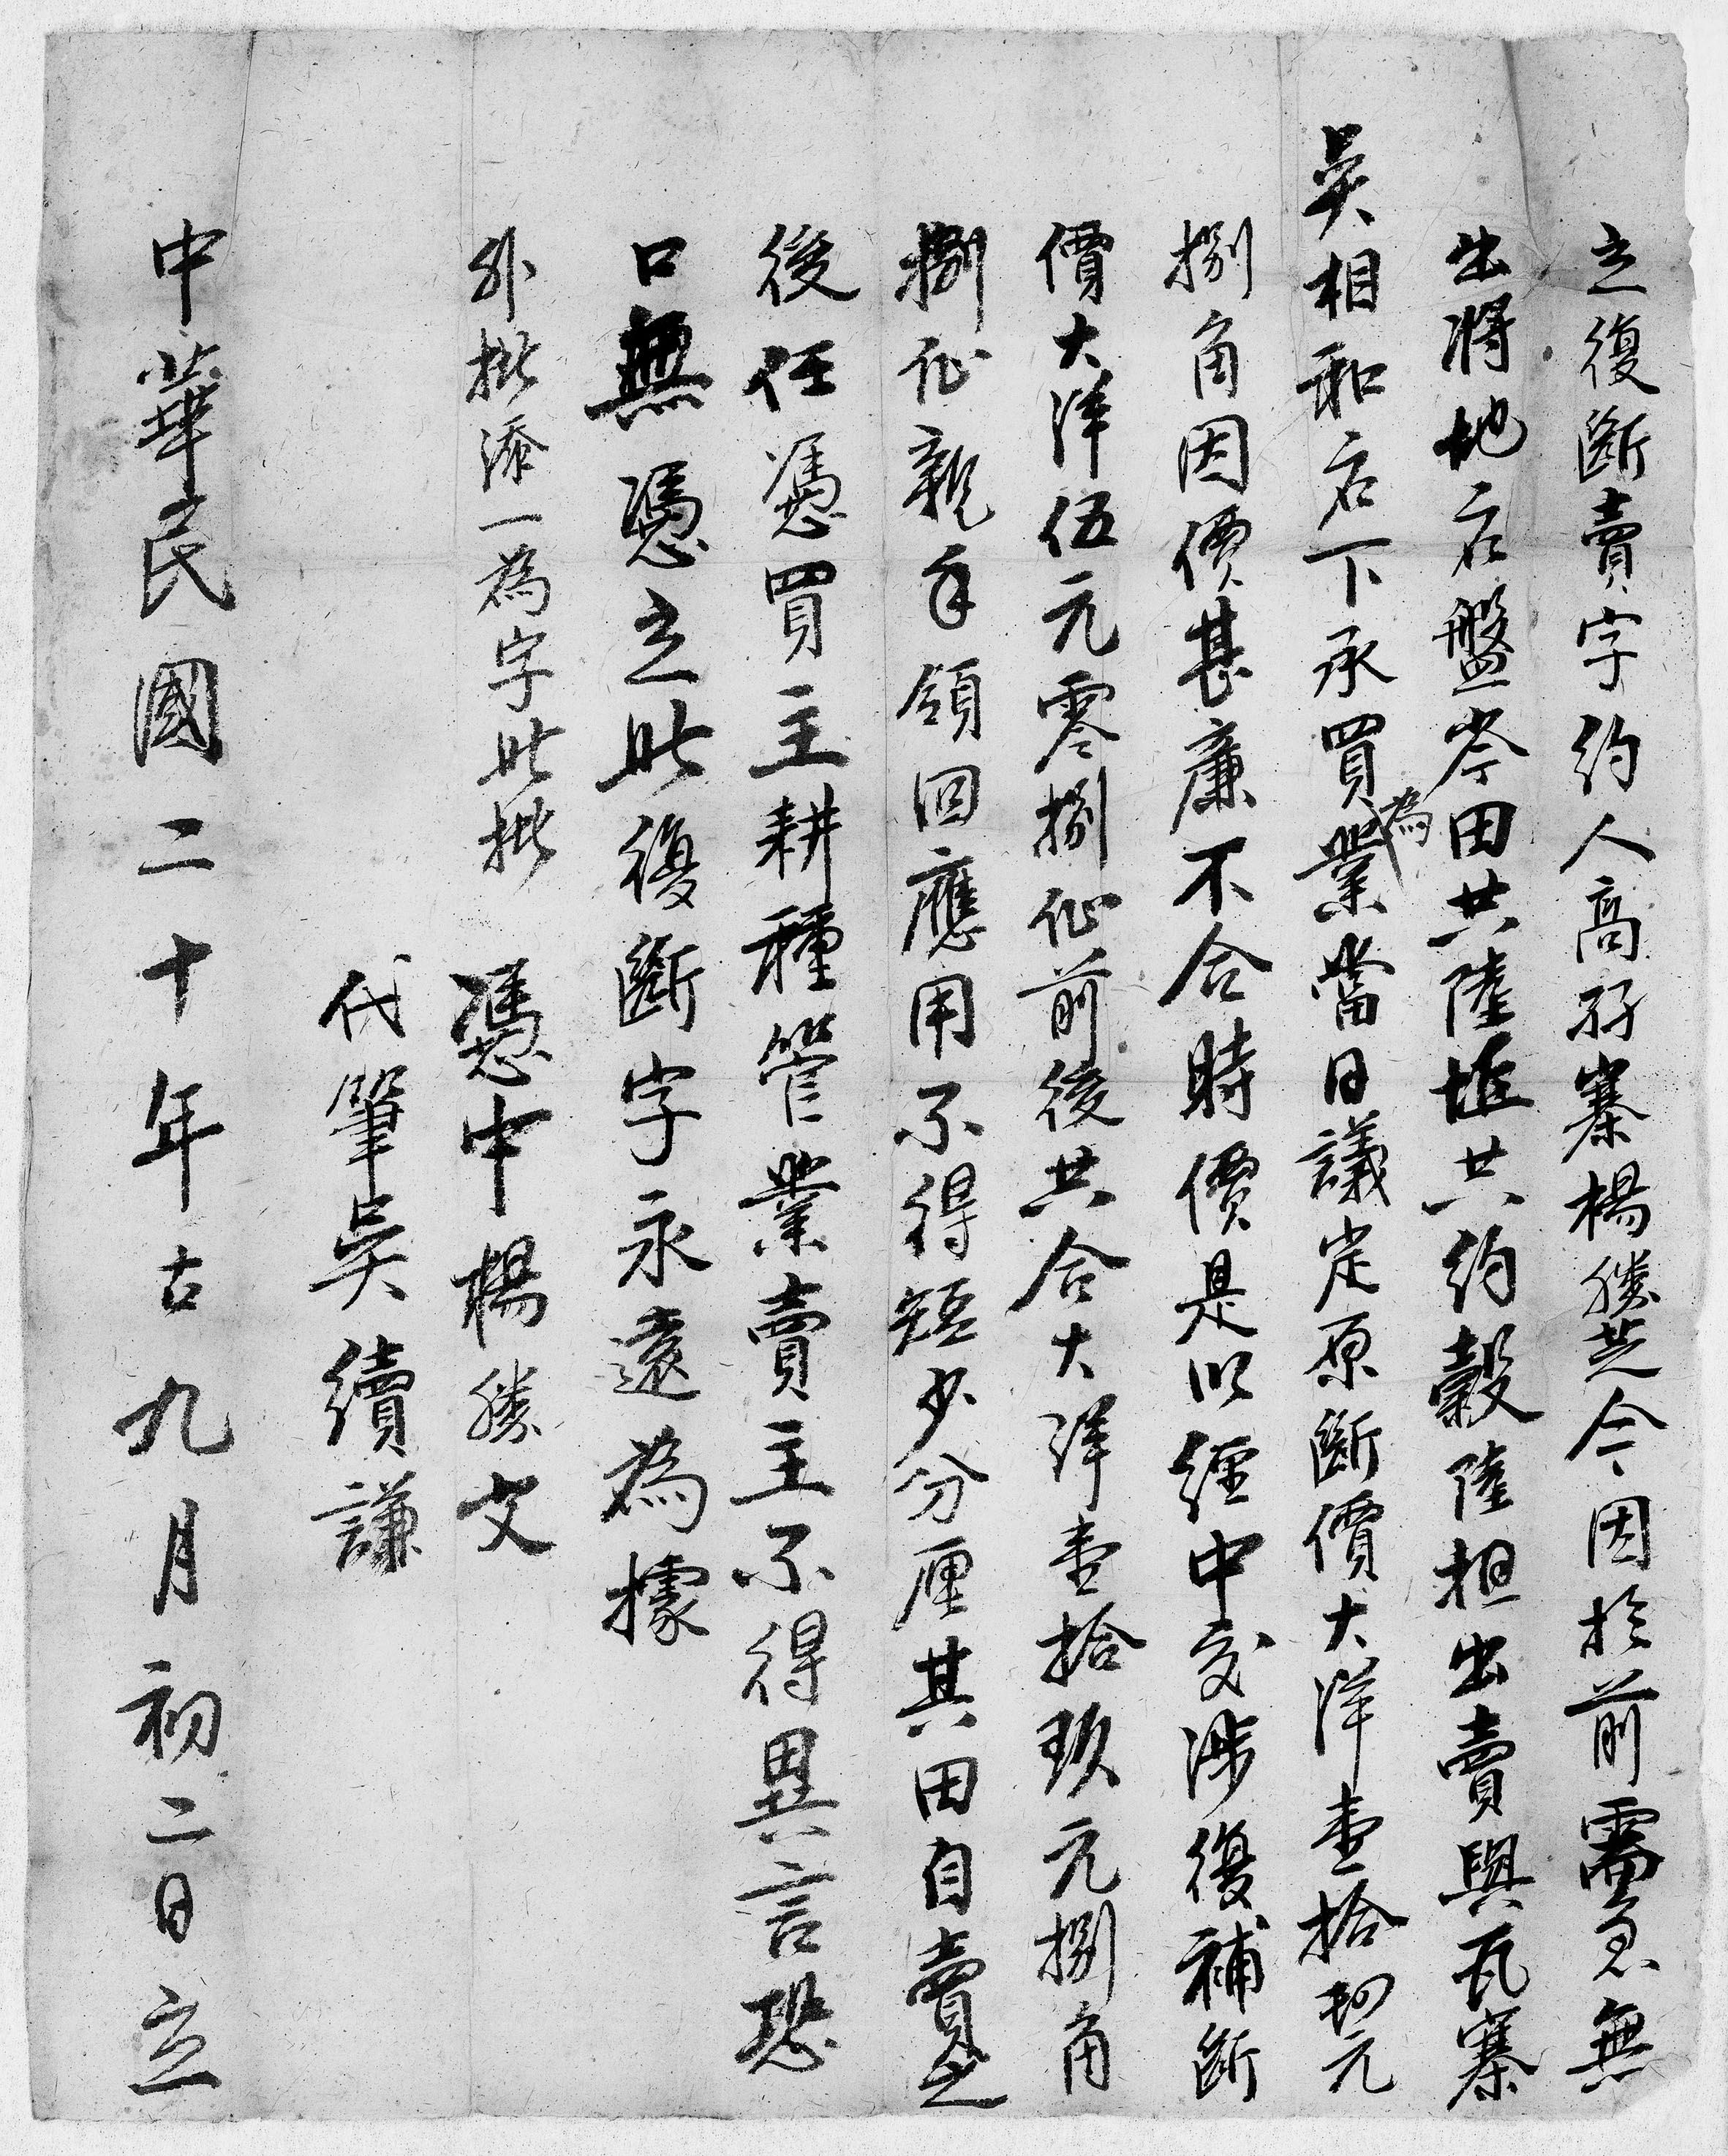 立復斷賣字約人高孖寨楊勝芝今因於前需急無
出將地名盤岑田共陸坵共約穀陸担出賣與瓦寨
吳相和名下承買為業當日議定原斷價大洋壹拾四元
捌角因價甚廉不合時價是以經中交涉復補斷
價大洋伍元零捌仙前後共合大洋壹拾玖元捌角
捌仙親手領回應用不得短少分厘其田自賣之
後任憑買主耕種管業賣主不得異言恐
口無憑立此復斷字永遠為據
外批添一為字此批 憑中楊勝文
代筆吳續謙
中華民國二十年古九月初二日立